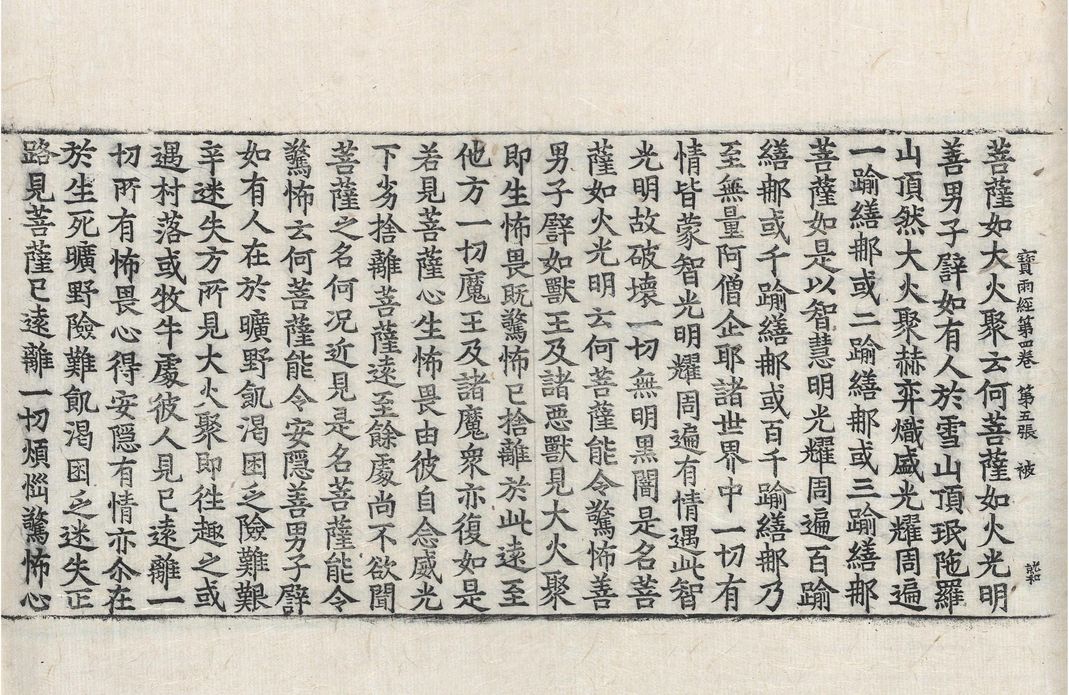 寶雨經第四卷　第五張　被　和
菩薩如大火聚云何菩薩如火光明
善男子譬如有人於雪山頂珉陁羅
山頂然大火聚赫弈熾盛光耀周遍
一踰繕那或二踰繕那或三踰繕那
菩薩如是以智慧明光耀周遍百踰
繕那或千踰繕那或百千踰繕那乃
至無量阿僧企耶諸世界中一切有
情皆蒙智光明耀周遍有情遇此智
光明故破壞一切無明黑闇是名菩
薩如火光明云何菩薩能令驚怖善
男子譬如獸王及諸惡獸見大火聚
即生怖畏既驚怖已捨離於此遠至
他方一切魔王及諸魔衆亦復如是
若見菩薩心生怖畏由彼自念威光
下劣捨離菩薩遠至餘處尚不欲聞
菩薩之名何况近見是名菩薩能令
驚怖云何菩薩能令安隱善男子譬
如有人在於曠野飢渴困乏險難艱
辛迷失方所見大火聚即往趣之或
遇村落或牧牛處彼人見已遠離一
切所有怖畏心得安隱有情亦尒在
於生死曠野險難飢渴困乏迷失正
路見菩薩已遠離一切煩惱驚怖心